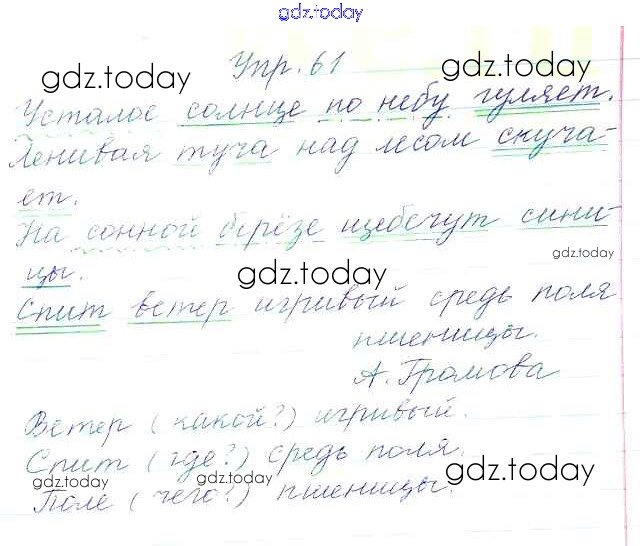 gdz.today
Упр. 61
gdz.today gdz.today
Усталое солнце по небу гуляет.
Ленивая туча над лесом скуча-
ет.
На сонной берёзе щебечут сини-
gdz.today
цы.
gdz.today
Спит ветер игривый средь поля
пшеницы.
А. Громова
Ветер (какой?) игривый.
Спит (где?) средь поля.
gdz.today gdz.today gdz.today
Поле (чего?) пшеницы.